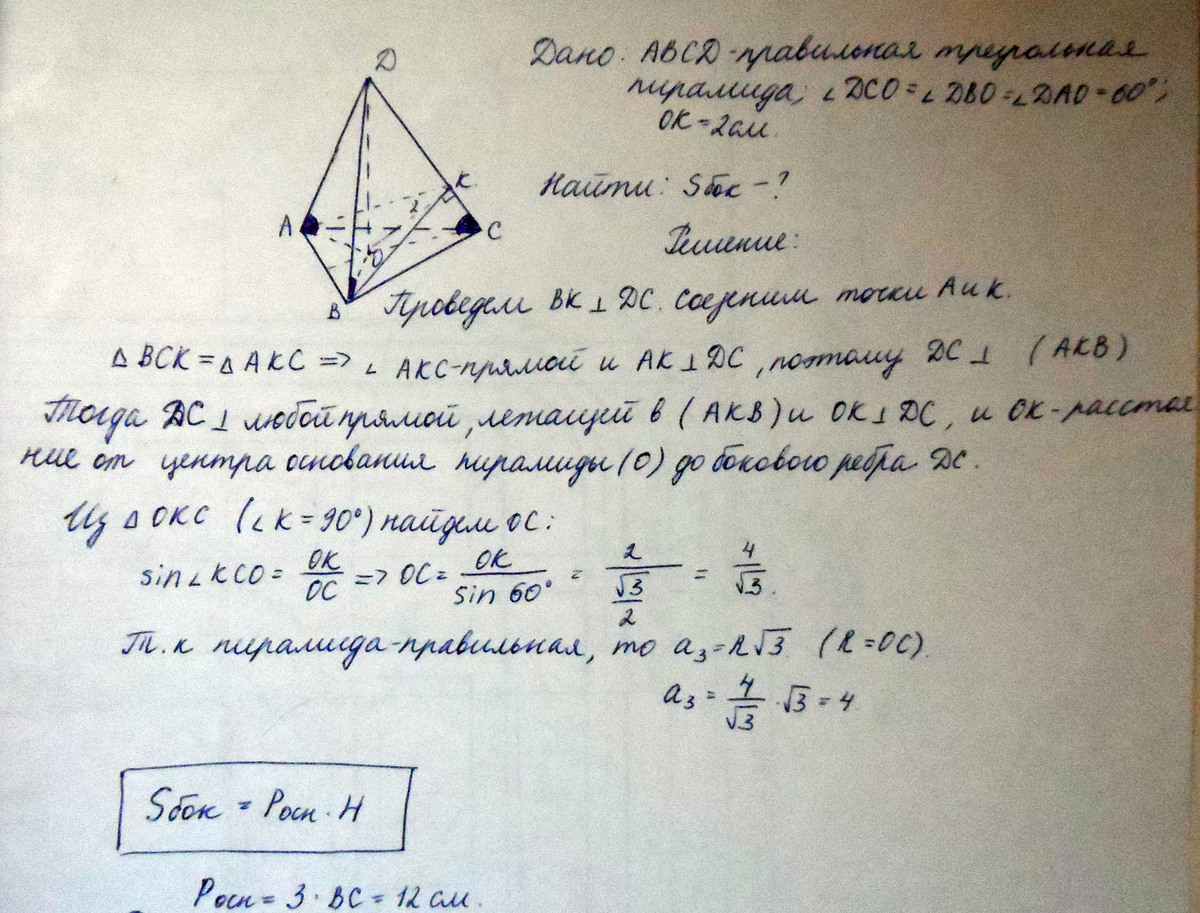 D
K
2
A
C
O
B
Дано: ABCD-правильная треугольная
пирамида; ∠DCO=∠DBO=∠DAO=60°;
OK=2см.
Найти: Sбок-?
Решение:
Проведем BK⊥DC. Соединим точки A и K.
△BCK=△AKC => ∠AKC-прямой и AK⊥DC, поэтому DC⊥ (AKB)
Тогда DC⊥ любой прямой, лежащей в (AKB) и OK⊥DC, и OK-расстоя
ние от центра основания пирамиды (O) до бокового ребра DC.
Из △OKC (∠K=90°) найдем OC:
sin∠KCO= OK/OC => OC= OK/sin 60° = 2/(√3/2) = 4/√3.
Т.к пирамида-правильная, то a₃=R√3. (R=OC).
a₃= 4/√3 · √3=4
Sбок = Pосн · H
Pосн= 3·BC=12см.